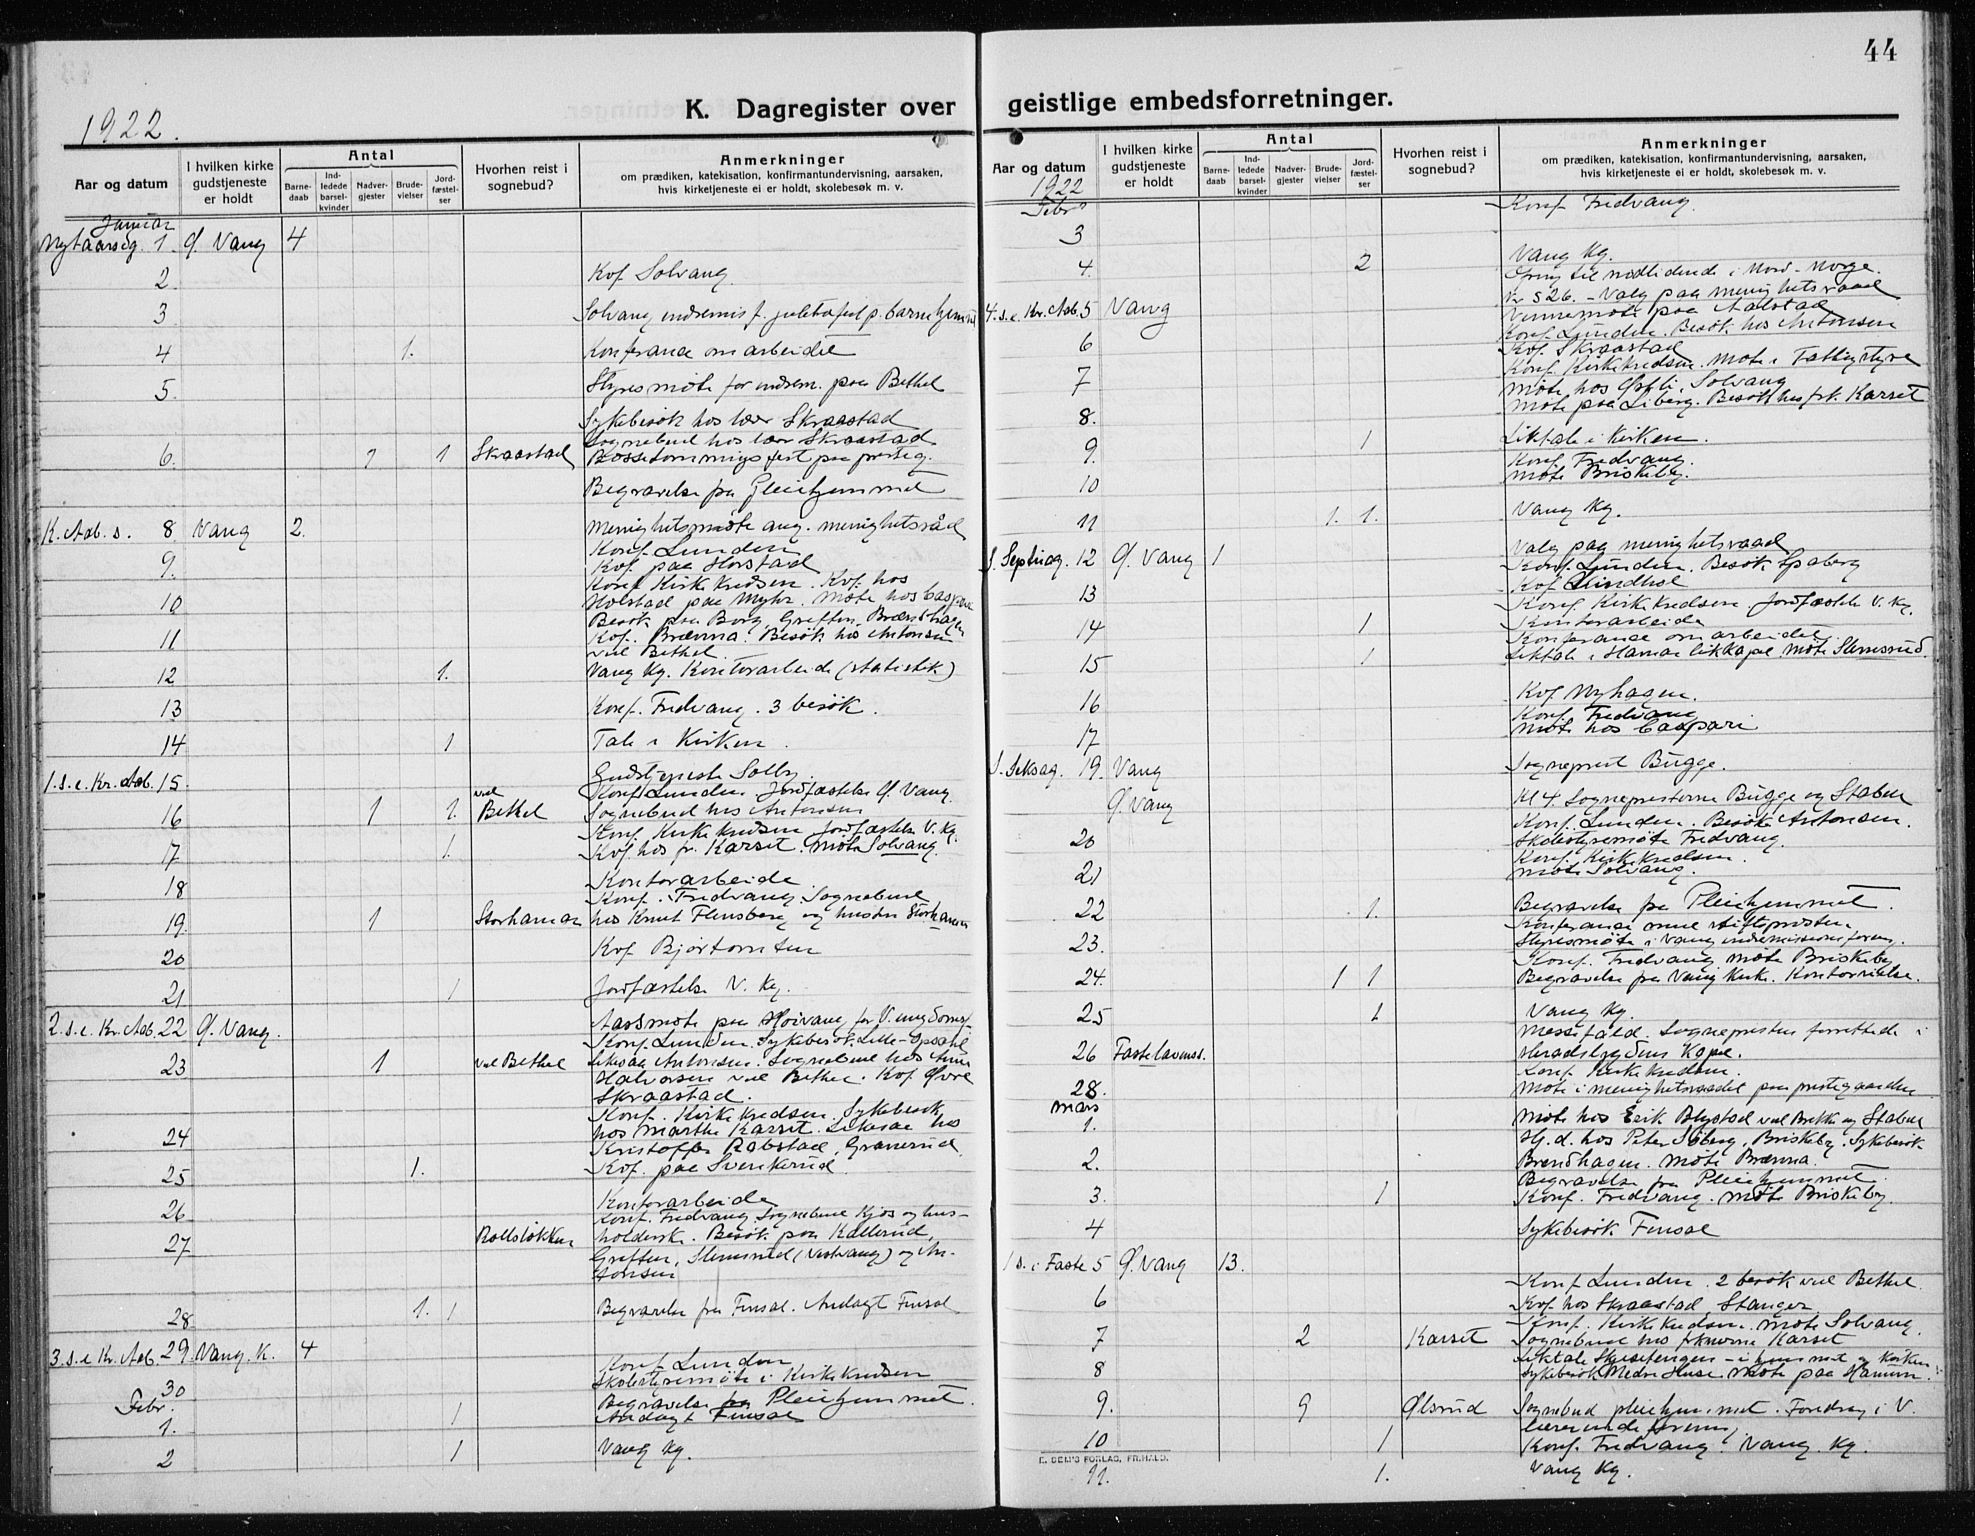 44
K. Dagregister over geistlige embedsforretninger.
1922.
Aar og datum
I hvilken kirke gudstjeneste er holdt
Antal
Barnedaab
Indledede barselkvinder
Nadvergjester
Brudevielser
Jordfæstelser
Hvorhen reist i sognebud?
Anmerkninger
om prædiken, katekisation, konfirmantundervisning, aarsaken,
hvis kirketjeneste ei er holdt, skolebesøk m. v.
Januar
Nytaarsdg. 1 Ø. Vang 4
2 Kof. Solvang
3 Solvang indremis. f. juletræfest p. barnehjemmet
4 1. Konferance om arbeidet
5 Styresmøte for indrem. paa Bethel
Sykebesøk hos lær Skraastad
Sognebud hos lær Skraastad
6. 1 1 Skraastad Bøssetømmingsfest paa presteg.
Begravelse fra Pleiehjemmet
K. Aab. s. 8 Vang 2. Menighetsmøte ang. menighetsråd
Konf. Lunden
9. Kof. paa Horstad
Konf. Kirkekredsen. Kof. hos
10 Holstad paa Myhr. Møte hos Caspari
Besøk paa Borg, Greften, Brændhagen
11 Kof. Brænna. Besøk hos Antonsen
ved Bethel
12 1. Vang Kg. Kontorarbeide (statistik)
13 Konf. Fredvang. 3 besøk.
14 1 Tale i Kirken.
1. s. e. Kr. Aab. 15. Gudstjeneste Solby.
Konf. Lunden. Jordfæstelse Ø. Vang.
16 1 1. ved Bethel Sognebud hos Antonsen
Konf. Kirkekredsen Jordfæstelse V. Kg.
17 1. Kof. hos fr. Karset. Møte Solvang.
18 Kontorarbeide
Konf. Fredvang. Sognebud
19. 1 Storhamar hos Knut Flensberg og hustru Storhamar
20 Kof Bjørtomten
21 1 Jordfæstelse V. Kg.
2. s. e. Kr. Aab. 22 Ø. Vang. Aarsmøte paa Høivang for V. ungdomsf.
Konf. Lunden. Sykebesøk Lille-Opsahl
23 1 ved Bethel Likesaa Antonsen. Sognebud hos Anne
Halvorsen ved Bethel. Kof. Øvre
Skraastad.
Konf. Kirkekredsen. Sykebesøk
24 hos Marthe Karset. Likesaa hos
Kristoffer Rabstad, Granerud
25 1. Kof. paa Svenkerud
26 Kontorarbeide
Konf. Fredvang. Sognebud Kjos og hus-
27 Rollsløkken holderske. Besøk paa Kallerud,
Greften, Stemsrud (Vestvang) og An-
tonsen
28 1. 1 Begravelse fra Finsal. Andagt Finsal
3. s. e. Kr. Aab. 29. Vang. K. 4
30 Konf. Lunden
Skolestyremøte i Kirkekredsen
Febr.
1. 1 Begravelse fra Pleiehjemmet.
Andagt Finsal
2 1 Vang Kg.
Aar og datum
I hvilken kirke gudstjeneste er holdt
Antal
Barnedaab
Indledede barselkvinder
Nadvergjester
Brudevielser
Jordfæstelser
Hvorhen reist i sognebud?
Anmerkninger
om prædiken, katekisation, konfirmantundervisning, aarsaken,
hvis kirketjeneste ei er holdt, skolebesøk m. v.
1922
Febr. Konf. Fredvang.
3
4. 2 Vang Kg.
Opring til nødlidende i Nord-Norge.
4. s. e. Kr. Aab. 5 Vang Kr 526. – Valg paa menighetsraad
Vennemøte paa Aalstad
Konf. Lunden. Besøk hos Antonsen
6 Kof. Skraastad
Konf. Kirkekredsen. Møte i Fattigstyre
7 Møte hos Østli, Solvang
Møte paa Liberg. Besøk hos frk. Karset
8.
9. 1 Liktale i Kirken.
Konf. Fredvang.
10 Møte Briskeby.
11 1. 1. Vang Kg.
S. Septuag. 12 Ø. Vang 1 Valg paa menighetsraad
Konf. Lunden. Besøk Spaberg
13 Kof Lindhol
Konf. Kirkekredsen. Jordfæstelse V. Kg.
14 1 Kontorarbeide
Konferance om arbeidet.
15 1 Liktale i Hamar likkapel Møte Stemsrud.
16 Kof Nyhagen.
Konf. Fredvang
17 Møte hos Caspari
S. Seksag. 19. Vang Sogneprest Bugge.
Ø. Vang Kl 4. Sogneprestene Bugge og Stabell
Konf. Lunden. Besøk Antonsen.
20 Skolestyremøte Fredvang.
Konf. Kirkekredsen.
21 Møte Solvang.
22 1. Begravelse fra Pleiehjemmet.
Konferance med stiftsprosten.
23. Styresmøte i Vang indremissionsforeng.
Konf. Fredvang Møte Briskeby
24. 1 1 Begravelse fra Vang Kirke. Kontorvielse.
25 1 Vang Kg.
Messefald. Sognepresten forrettede i
26 Fastelavenss. Heradsbygdens Kapel.
Konf. Kirkekredsen.
28. Møte i menighetsraadet paa prestegaarden
Mars
1. Møte hos Erik Blystad ved Brekke og Stabell
H.d. hos Peter Siberg, Briskeby. Sykebesøk
2. Brendhagen. Møte Brænna.
Begravelse fra Pleiehjemmet.
3. 1 Konf. Fredvang. Møte Briskeby.
4 Sykebesøk Finsal
1 s. i Faste 5 Ø. Vang 13.
Konf. Lunden. 2 besøk ved Bethel.
6 Kof. hos Skraastad Stanger.
Konf. Kirkekredsen. Møte Solvang.
7 2 Karset Sognebud hos frknerne Karset
8 Liktale – i hjemmet og Kirken
Sykebesøk Nedre Huse. Møte paa Hamnen.
9. 9 Ølsrud Sognebud pleiehjemmet. Foredrag i V.
lærerindeforening
10 1 Konf. Fredvang. Vang Kg.
E. SEM'S FORLAG, FR.HALD.
11. 1. Vang Kg.